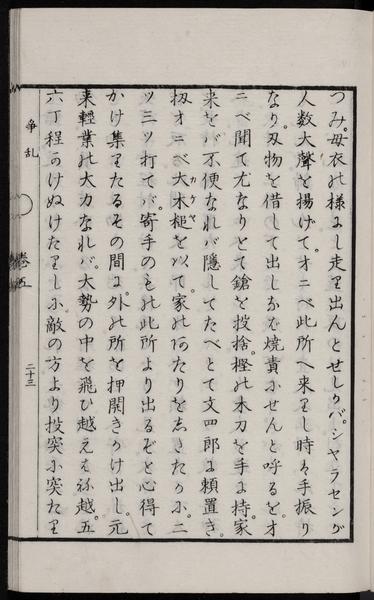 つみ。母衣の様に し走り出んとせしかバ。シヤラセンガ
人数大聲を揚げて。オニベ此所へ来りし時ハ手振り
なり。刃物を借して出しなバ焼責にせんと呼るを。オ
ニベ聞て尤なりとて鎗を投捨。樫の木刀を手に持家
来をバ不便なれバ隠してたべとて文四郎に頼置き。
扨オニベ大木槌を以て。家のほとりを志きたゝかに。二
カケヤ
ツ三ツ打てバ。寄手のもの此所より出るぞと心得て
かけ集りたるその間に。外の所を押開きかけ出し。元
来輕業の大力なれバ。大勢の中を飛ひ越えはね越。五
六丁程かけぬけたりしに。敵の方より投突に突たり
争乱
巻五
二十三